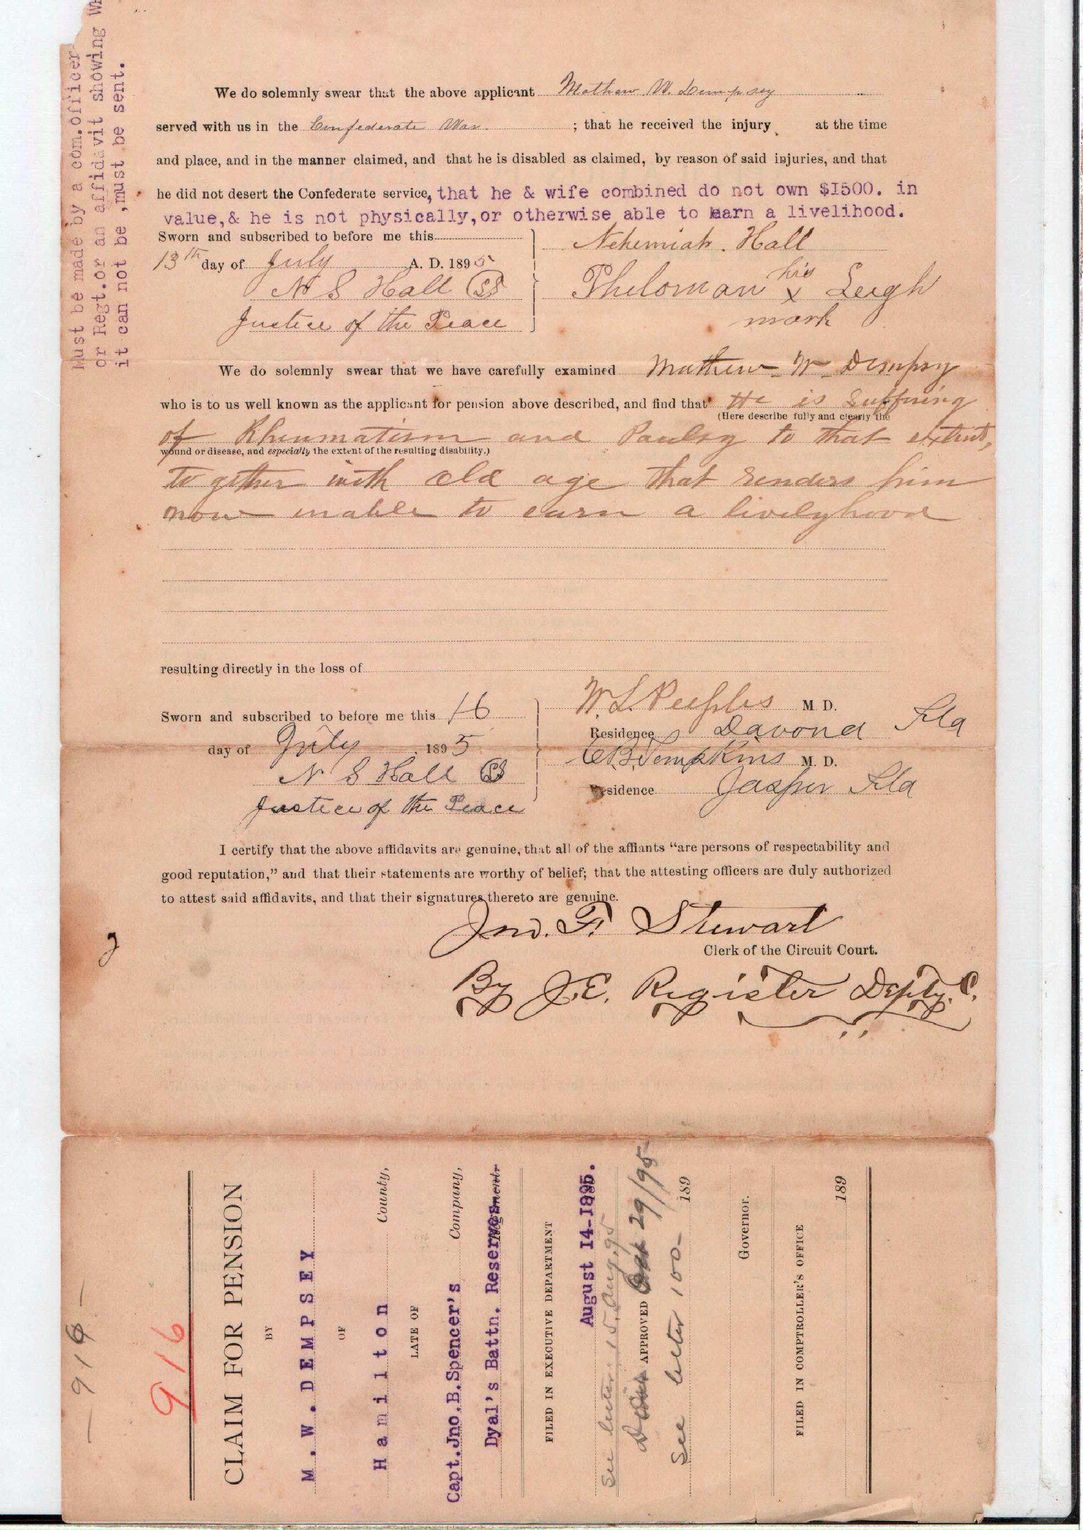 Must be made by a com.officer
or Regt.or an affidavit showing Wh
it can not be ,must be sent.
We do solemnly swear that the above applicant Mathew W. Dempsey
served with us in the Confederate War. ; that he received the injury, at the time
and place, and in the manner claimed, and that he is disabled as claimed, by reason of said injuries, and that
he did not desert the Confederate service, that he & wife combined do not own $1500. in
value,& he is not physically,or otherwise able to earn a livelihood.
Sworn and subscribed to before me this
13th day of July A. D. 1895
N S Hall
Justice of the Peace
Nehemiah. Hall
his
Pheloman x Leigh
mark
We do solemnly swear that we have carefully examined Mathew W Dempsy
who is to us well known as the applicant for pension above described, and find that He is suffring
(Here describe fully and clearly the
of Rheumatism and Paulsy to that extent,
wound or disease, and especially the extent of the resulting disability.)
together with old age that renders him
now unable to earn a livelyhood
resulting directly in the loss of
Sworn and subscribed to before me this 16
day of July 1895
N S Hall
Justice of the Peace
W. L. Peeples M. D.
Residence Davond Fla
C B Tompkins M. D.
Residence Jasper Fla
I certify that the above affidavits are genuine, that all of the affiants "are persons of respectability and
good reputation," and that their statements are worthy of belief; that the attesting officers are duly authorized
to attest said affidavits, and that their signatures thereto are genuine.
Jno. F. Stewart
Clerk of the Circuit Court.
By J. E. Register Depty. C.
— 916 —
916
CLAIM FOR PENSION
BY
M. W. DEMPSEY
OF
Hamilton County,
LATE OF
Capt.Jno.B.Spencer's Company,
Dyal's Battn. Reserves. Regiment
FILED IN EXECUTIVE DEPARTMENT
August 14-1895.
See letter 15. Aug. 95
APPROVED Oct 29/95
See letter 100- 189
Governor.
FILED IN COMPTROLLER'S OFFICE
189